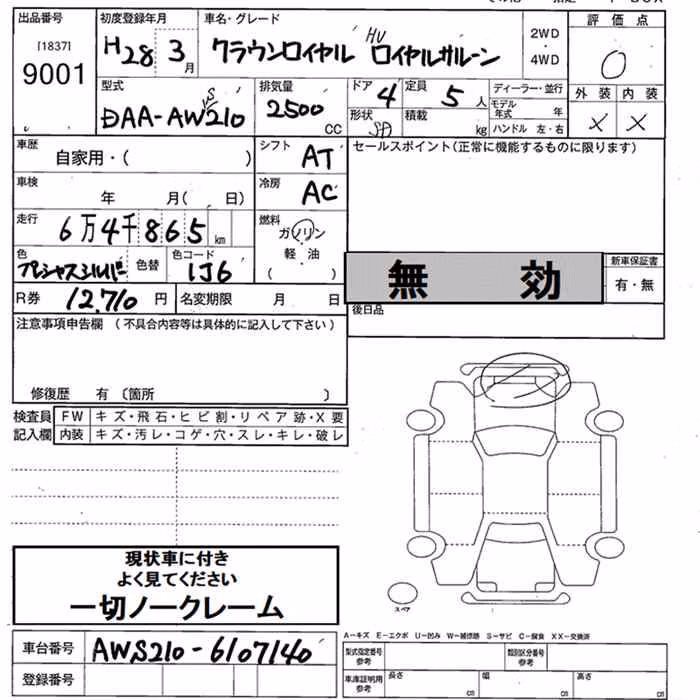 出品番号 初度登録年月 車名・グレード 評価点
[1837] 2WD
9001 H28 3月 クラウンロイヤル HV ロイヤルサルーン ・ 0
4WD
型式 排気量 ドア 定員 ディーラー・並行 外装 内装
DAA-AWS210 2500CC 4 5人 モデル年式 年
形状 積載 kg ハンドル 左・右 X X
車歴 自家用・( ) シフト AT セールスポイント(正常に機能するものに限ります)
車検 年 月( 日) 冷房 AC
走行 6万4千865km 燃料 ガソリン
軽・油
( )
色 色替 色コード 1J6 無 効 新車保証書
有・無
R券 12.710円 名変期限 月 日 後日品
注意事項申告欄(不具合内容等は具体的に記入して下さい)
修復歴 有〔箇所 〕
検査員 FW キズ・飛石・ヒビ割・リペア跡・X要
記入欄 内装 キズ・汚レ・コゲ・穴・スレ・キレ・破レ
現状車に付き
よく見てください
一切ノークレーム
スペア
A-キズ E-エクボ U-凹み W-補修跡 S-サビ C-腐食 XX-交換済
車台番号 AWS210-6107140 型式指定番号 参考 類別区分番号 参考
登録番号 車庫証明用 参考 長さ cm 幅 cm 高さ cm